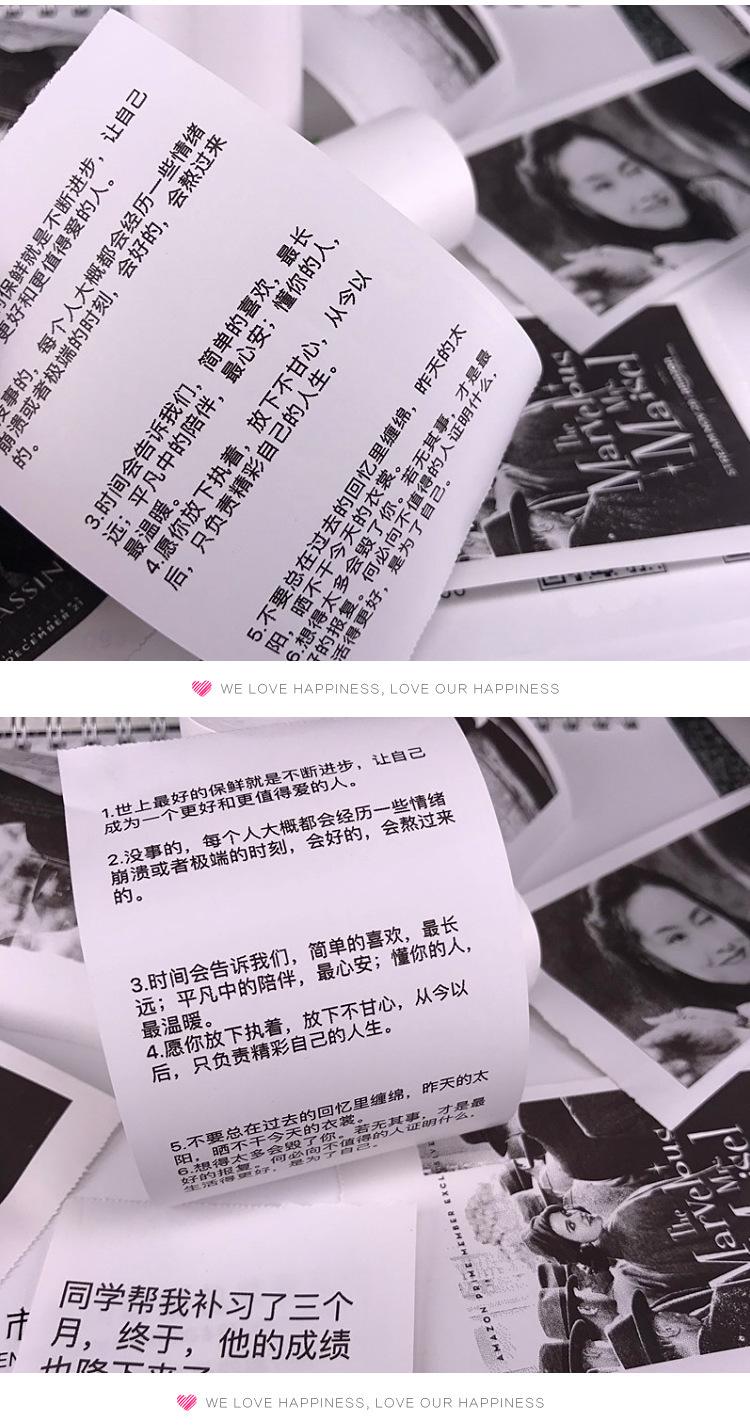 保鲜就是不断进步，让自己
更好和更值得爱的人。
没事的，每个人大概都会经历一些情绪
崩溃或者极端的时刻，会好的，会熬过来
的。
3.时间会告诉我们，简单的喜欢，最长
远；平凡中的陪伴，最心安；懂你的人，
最温暖。
4.愿你放下执着，放下不甘心，从今以
后，只负责精彩自己的人生。
5.不要总在过去的回忆里缠绵，昨天的太
阳，晒不干今天的衣裳。
6.想得太多会毁了你。若无其事，才是最
好的报复。何必向不值得的人证明什么，
活得更好，是为了自己。
The
Marvelous
Mrs
Maisel
ASSIN
DECEMBER 21
WE LOVE HAPPINESS, LOVE OUR HAPPINESS
1.世上最好的保鲜就是不断进步，让自己
成为一个更好和更值得爱的人。
2.没事的，每个人大概都会经历一些情绪
崩溃或者极端的时刻，会好的，会熬过来
的。
3.时间会告诉我们，简单的喜欢，最长
远；平凡中的陪伴，最心安；懂你的人，
最温暖。
4.愿你放下执着，放下不甘心，从今以
后，只负责精彩自己的人生。
5.不要总在过去的回忆里缠绵，昨天的太
阳，晒不干今天的衣裳。
6.想得太多会毁了你。若无其事，才是最
好的报复。何必向不值得的人证明什么，
生活得更好，是为了自己。
The
Marvelous
Mrs
AMAZON PRIME MEMBER EXCLUSIVE
同学帮我补习了三个
月，终于，他的成绩
也降下来了
市
EN
WE LOVE HAPPINESS, LOVE OUR HAPPINESS